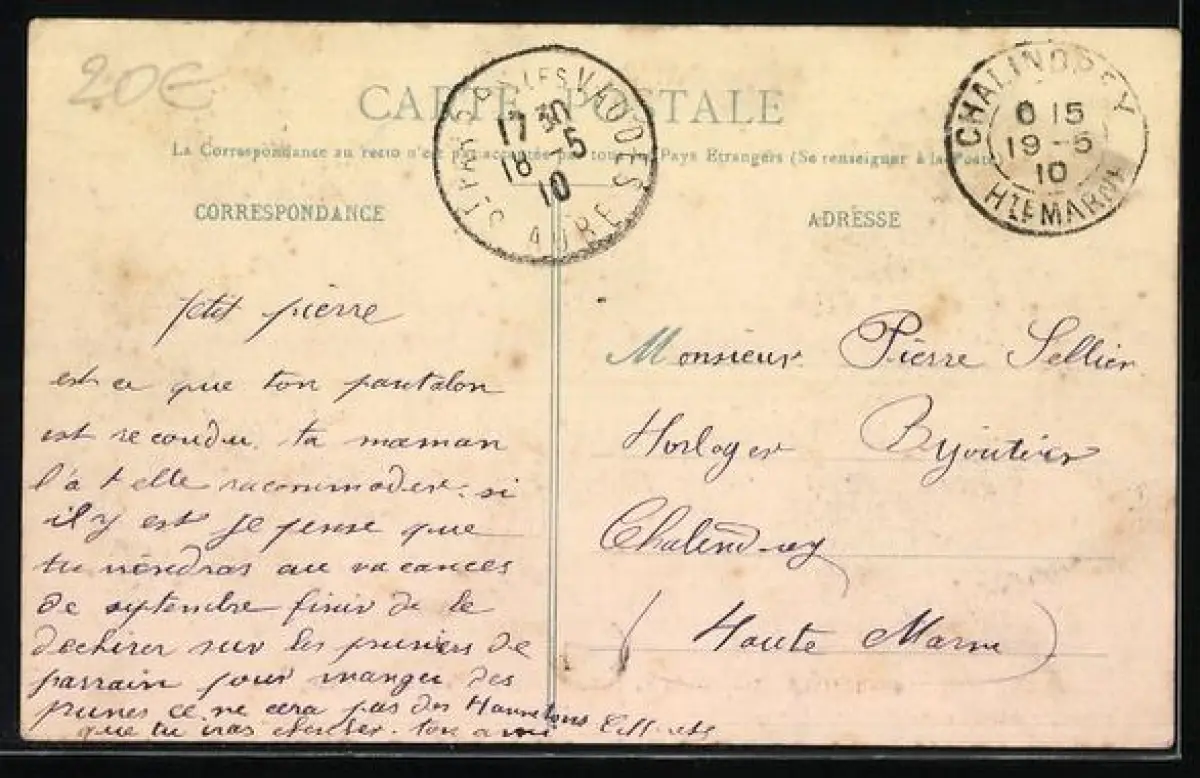 20€
CARTE POSTALE
La Correspondance au recto n'est pas acceptée par tous les Pays Etrangers (Se renseigner à la Poste)
ST PARRES LES VAUDES
17 30
18 -5
10
AUBE
CHALINDREY
0 15
19 -5
10
HTE MARNE
CORRESPONDANCE
petit pierre
est ce que ton pantalon
est recoudu ta maman
l'a t elle racommoder. si
il y est je pense que
tu viendras au vacances
de septembre finir de le
dechirer sur les pruniers de
parrain pour manger des
prunes ce ne cera pas des Hannetons
que tu iras chercher. ton ami
ADRESSE
Monsieur Pierre Sellier
Horloger Bijoutier
Chalindrey
(Haute Marne)